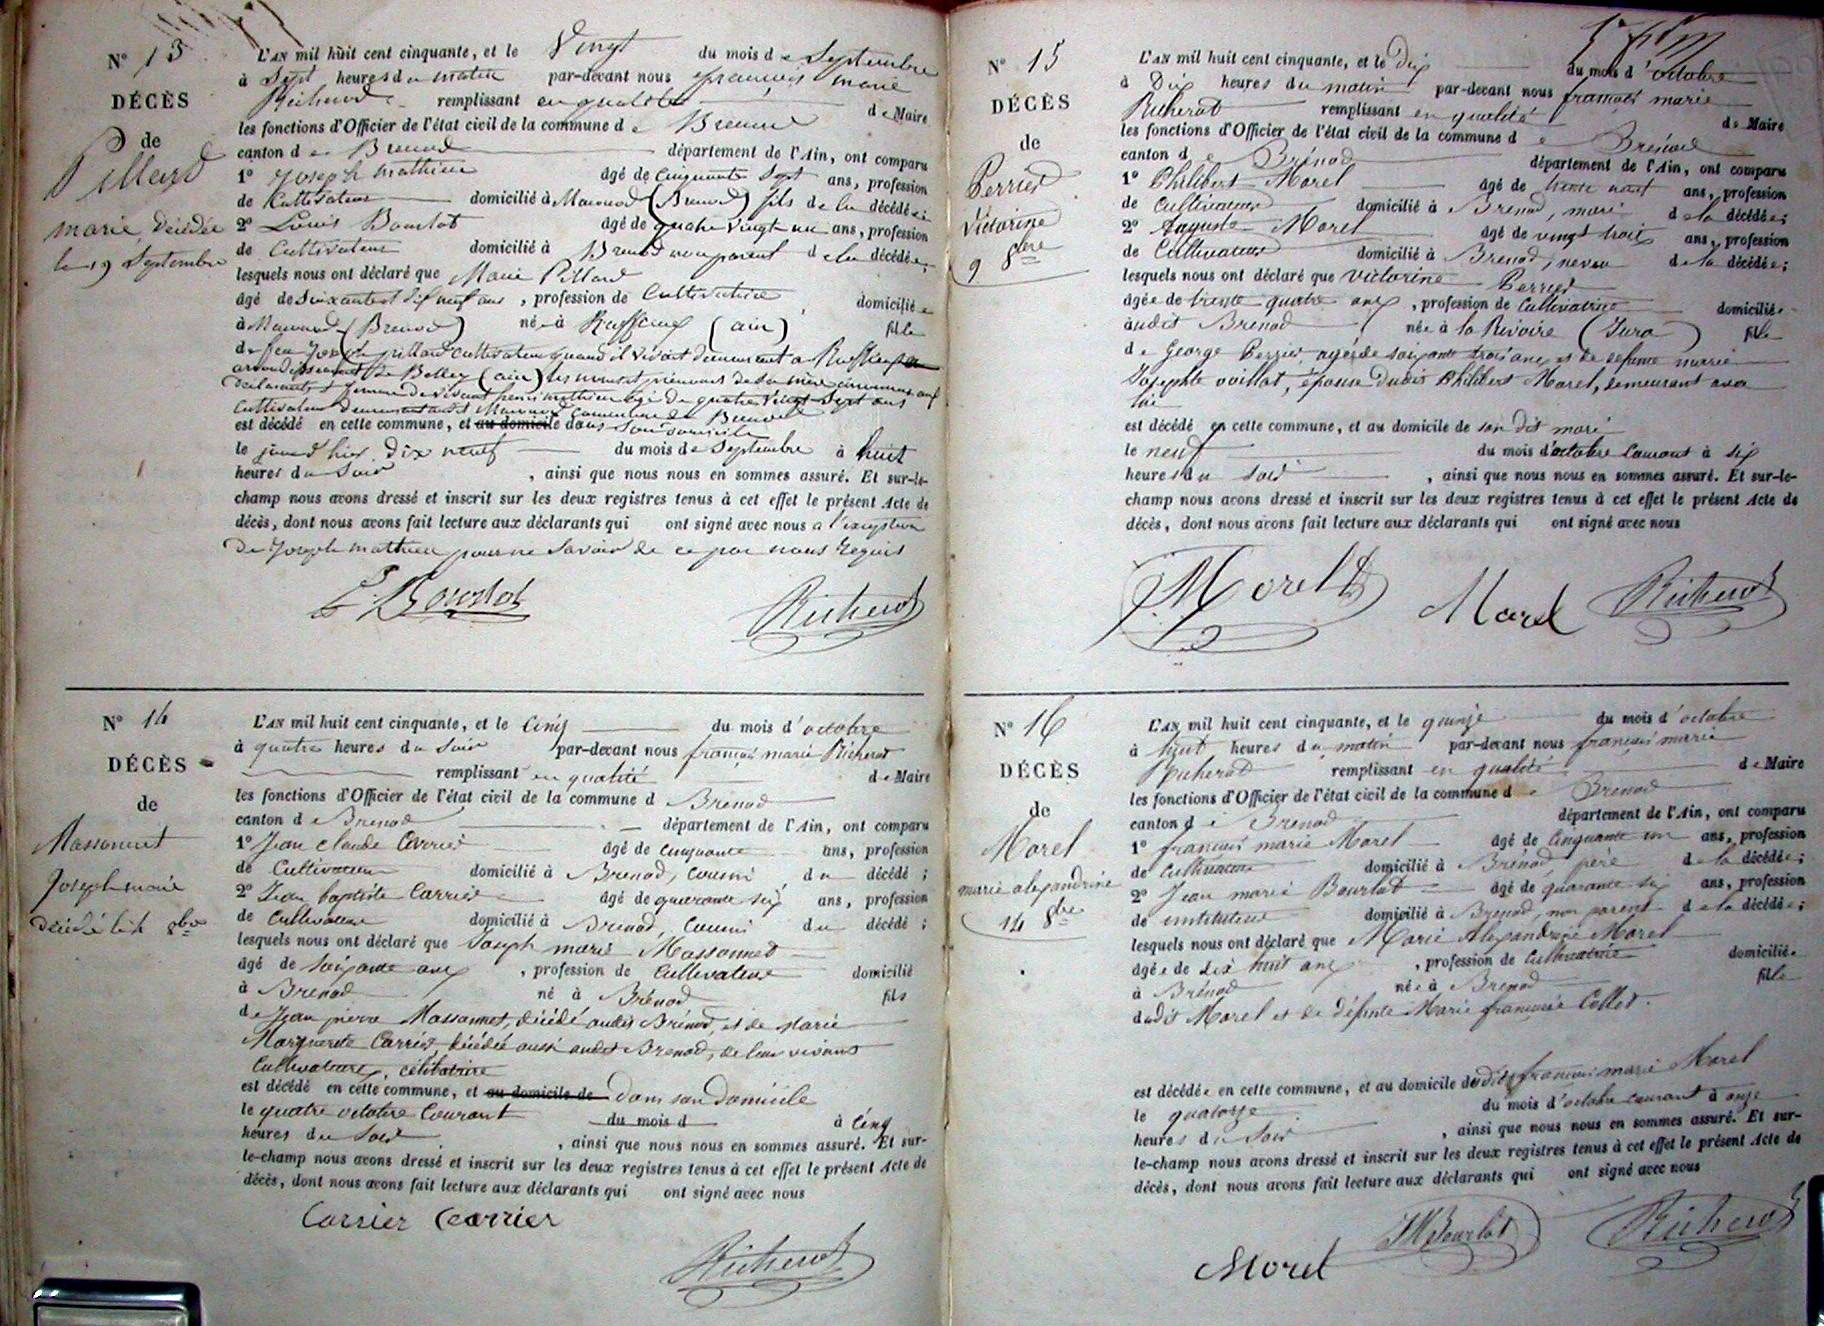 N° 13
DÉCÈS
de
Pillard
marie, décédée
le 19 Septembre
L'AN mil huit cent cinquante, et le Vingt du mois de Septembre
à Sept heures du matin par-devant nous françois marie
Richerod remplissant en qualité de Maire
les fonctions d'Officier de l'état civil de la commune de Brenod
canton de Brenod département de l'Ain, ont comparu
1° Joseph mathieu âgé de Cinquante Sept ans, profession
de Cultivateur domicilié à Macconod (Brenod) fils de la décédée;
2° Louis Bourlot âgé de quatre vingt un ans, profession
de Cultivateur domicilié à Brenod non parent de la décédée;
lesquels nous ont déclaré que Marie Pillard
âgé de Soixante et dix neuf ans, profession de Cultivatrice domiciliée
à Macconod (Brenod) née à Ruffieux (ain) fille
de feu Joseph pillard cultivateur quand il vivait demeurant à Ruffieux
arrondissement de Belley (ain) les nom et prénoms de sa mère inconnus aux
déclarants et femme de vivant pierre mathieu agé de quatre vingt Sept ans
Cultivateur demeurant audit Macconod commune de Brenod
est décédé en cette commune, et au domicile dans Son domicile
le jour d'hier dix neuf du mois de Septembre à huit
heures du Soir, ainsi que nous nous en sommes assuré. Et sur-le-
champ nous avons dressé et inscrit sur les deux registres tenus à cet effet le présent Acte de
décès, dont nous avons fait lecture aux déclarants qui ont signé avec nous a l'exception
de Joseph mathieu pour ne Savoir de ce par nous requis
Bourlot Richerod
N° 14
DÉCÈS
de
Massonnet
Joseph marie
décédé le 4 8bre
L'AN mil huit cent cinquante, et le Cinq du mois d'octobre
à quatre heures du Soir par-devant nous françois marie Richerod
remplissant en qualité de Maire
les fonctions d'Officier de l'état civil de la commune d Brenod
canton de Brenod département de l'Ain, ont comparu
1° Jean claude Carrier âgé de cinquante ans, profession
de Cultivateur domicilié à Brenod, cousin du décédé;
2° Jean baptiste Carrier âgé de quarante six ans, profession
de Cultivateur domicilié à Brenod, Cousin du décédé;
lesquels nous ont déclaré que Joseph marie Massonnet
âgé de soixante ans, profession de Cultivateur domicilié
à Brenod né à Brénod fils
de Jean pierre Massonnet, décédé audit Brénod, et de Marie
Marguerite Carrier, décédée aussi audit Brenod, de leur vivant
Cultivateurs, célibataire
est décédé en cette commune, et au domicile de dans son domicile
le quatre octobre Courant du mois d à Cinq
heures du Soir, ainsi que nous nous en sommes assuré. Et sur-
le-champ nous avons dressé et inscrit sur les deux registres tenus à cet effet le présent Acte de
décès, dont nous avons fait lecture aux déclarants qui ont signé avec nous
Carrier Carrier
Richerod
N° 15
DÉCÈS
de
Perrier
Victorine
9 8bre
L'AN mil huit cent cinquante, et le dix du mois d'octobre
à Dix heures du matin par-devant nous françois marie
Richerod remplissant en qualité de Maire
les fonctions d'Officier de l'état civil de la commune de Brénod
canton de Brénod département de l'Ain, ont comparu
1° Philibert Morel âgé de trente neuf ans, profession
de Cultivateur domicilié à Brenod, mari de la décédée;
2° Auguste Morel âgé de vingt trois ans, profession
de Cultivateur domicilié à Brenod, neveu de la décédée;
lesquels nous ont déclaré que victorine Perrier
âgée de trente quatre ans, profession de Cultivatrice domiciliée
audit Brenod née à la Rivoire (Jura) fille
de George Perrier agé de soixante trois ans, et de defunte marie
Josephte vuillot, épouse dudit Philibert Morel, demeurant avec
lui
est décédé en cette commune, et au domicile de son dit mari
le neuf du mois d'octobre Courant à six
heures du soir, ainsi que nous nous en sommes assuré. Et sur-le-
champ nous avons dressé et inscrit sur les deux registres tenus à cet effet le présent Acte de
décès, dont nous avons fait lecture aux déclarants qui ont signé avec nous
Morel Morel Richerod
N° 16
DÉCÈS
de
Morel
marie alexandrine
14 8bre
L'AN mil huit cent cinquante, et le quinze du mois d'octobre
à huit heures du matin par-devant nous françois marie
Richerod remplissant en qualité de Maire
les fonctions d'Officier de l'état civil de la commune de Brenod
canton de Brenod département de l'Ain, ont comparu
1° françois marie Morel âgé de Cinquante un ans, profession
de Cultivateur domicilié à Brénod, père de la décédée;
2° Jean marie Bourlot âgé de quarante six ans, profession
de instituteur domicilié à Brenod, non parent de la décédée;
lesquels nous ont déclaré que Marie Alexandrine Morel
âgée de dix huit ans, profession de Cultivatrice domiciliée
à Brénod née à Brenod fille
dudit Morel et de défunte Marie françoise Collet.
est décédée en cette commune, et au domicile dudit françois marie Morel
le quatorze du mois d'octobre courant à onze
heures du Soir, ainsi que nous nous en sommes assuré. Et sur-
le-champ nous avons dressé et inscrit sur les deux registres tenus à cet effet le présent Acte de
décès, dont nous avons fait lecture aux déclarants qui ont signé avec nous
Morel JMBourlot Richerod